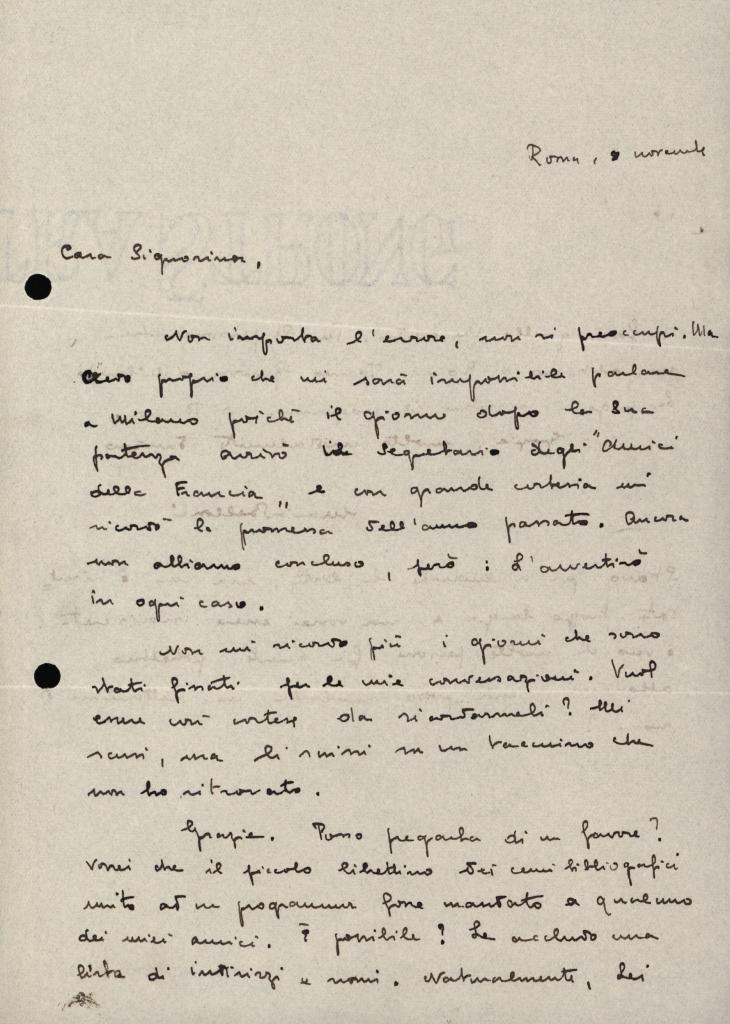 Roma, 9 novembre
Cara Signorina,
Non importa l'errore, non si preoccupi. Ma
credo proprio che mi sarà impossibile parlare
a Milano poiché il giorno dopo la Sua
partenza arrivò il Segretario degli "Amici
della Francia" e con grande cortesia mi
ricordò la promessa dell'anno passato. Ancora
non abbiamo concluso, però: L'avvertirò
in ogni caso.
Non mi ricordo più i giorni che sono
stati fissati per le mie conversazioni. Vuol
essere così cortese da ricordarmeli? Mi
scusi, ma li scrissi su un taccuino che
non ho ritrovato.
Grazie. Posso pregarla di un favore?
Vorrei che il piccolo librettino dei cenni bibliografici
unito ad un programma fosse mandato a qualcuno
dei miei amici. È possibile? Le accludo una
lista di indirizzi e nomi. Naturalmente, Lei